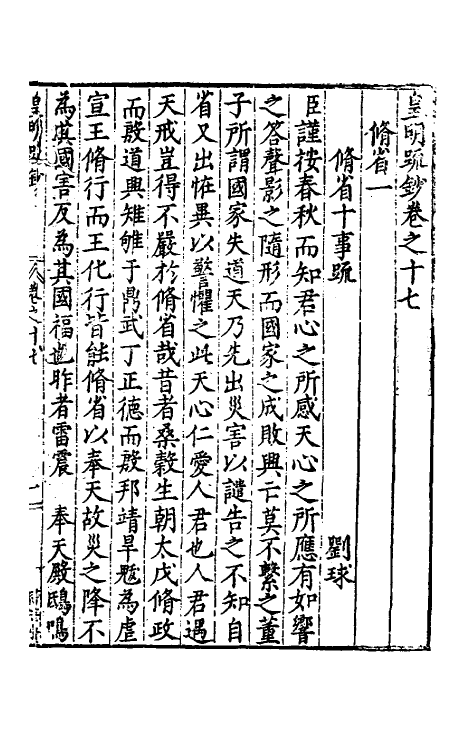 皇明疏鈔卷之十七
脩省一
脩省十事疏 劉球
臣謹按春秋而知君心之所感天心之所應有如響
之答聲影之隨形而國家之成敗興亡莫不繫之董
子所謂國家失道天乃先出災害以譴告之不知自
省又出恠異以警懼之此天心仁愛人君也人君遇
天戒豈得不嚴於脩省哉昔者桑榖生朝太戊脩政
而殷道興雉雊于鼎武丁正德而殷邦靖旱魃為虐
宣王脩行而王化行皆能脩省以奉天故災之降不
為其國害反為其國福也昨者雷震 奉天殿鴟鳴
皇明疏鈔 卷之十七 一